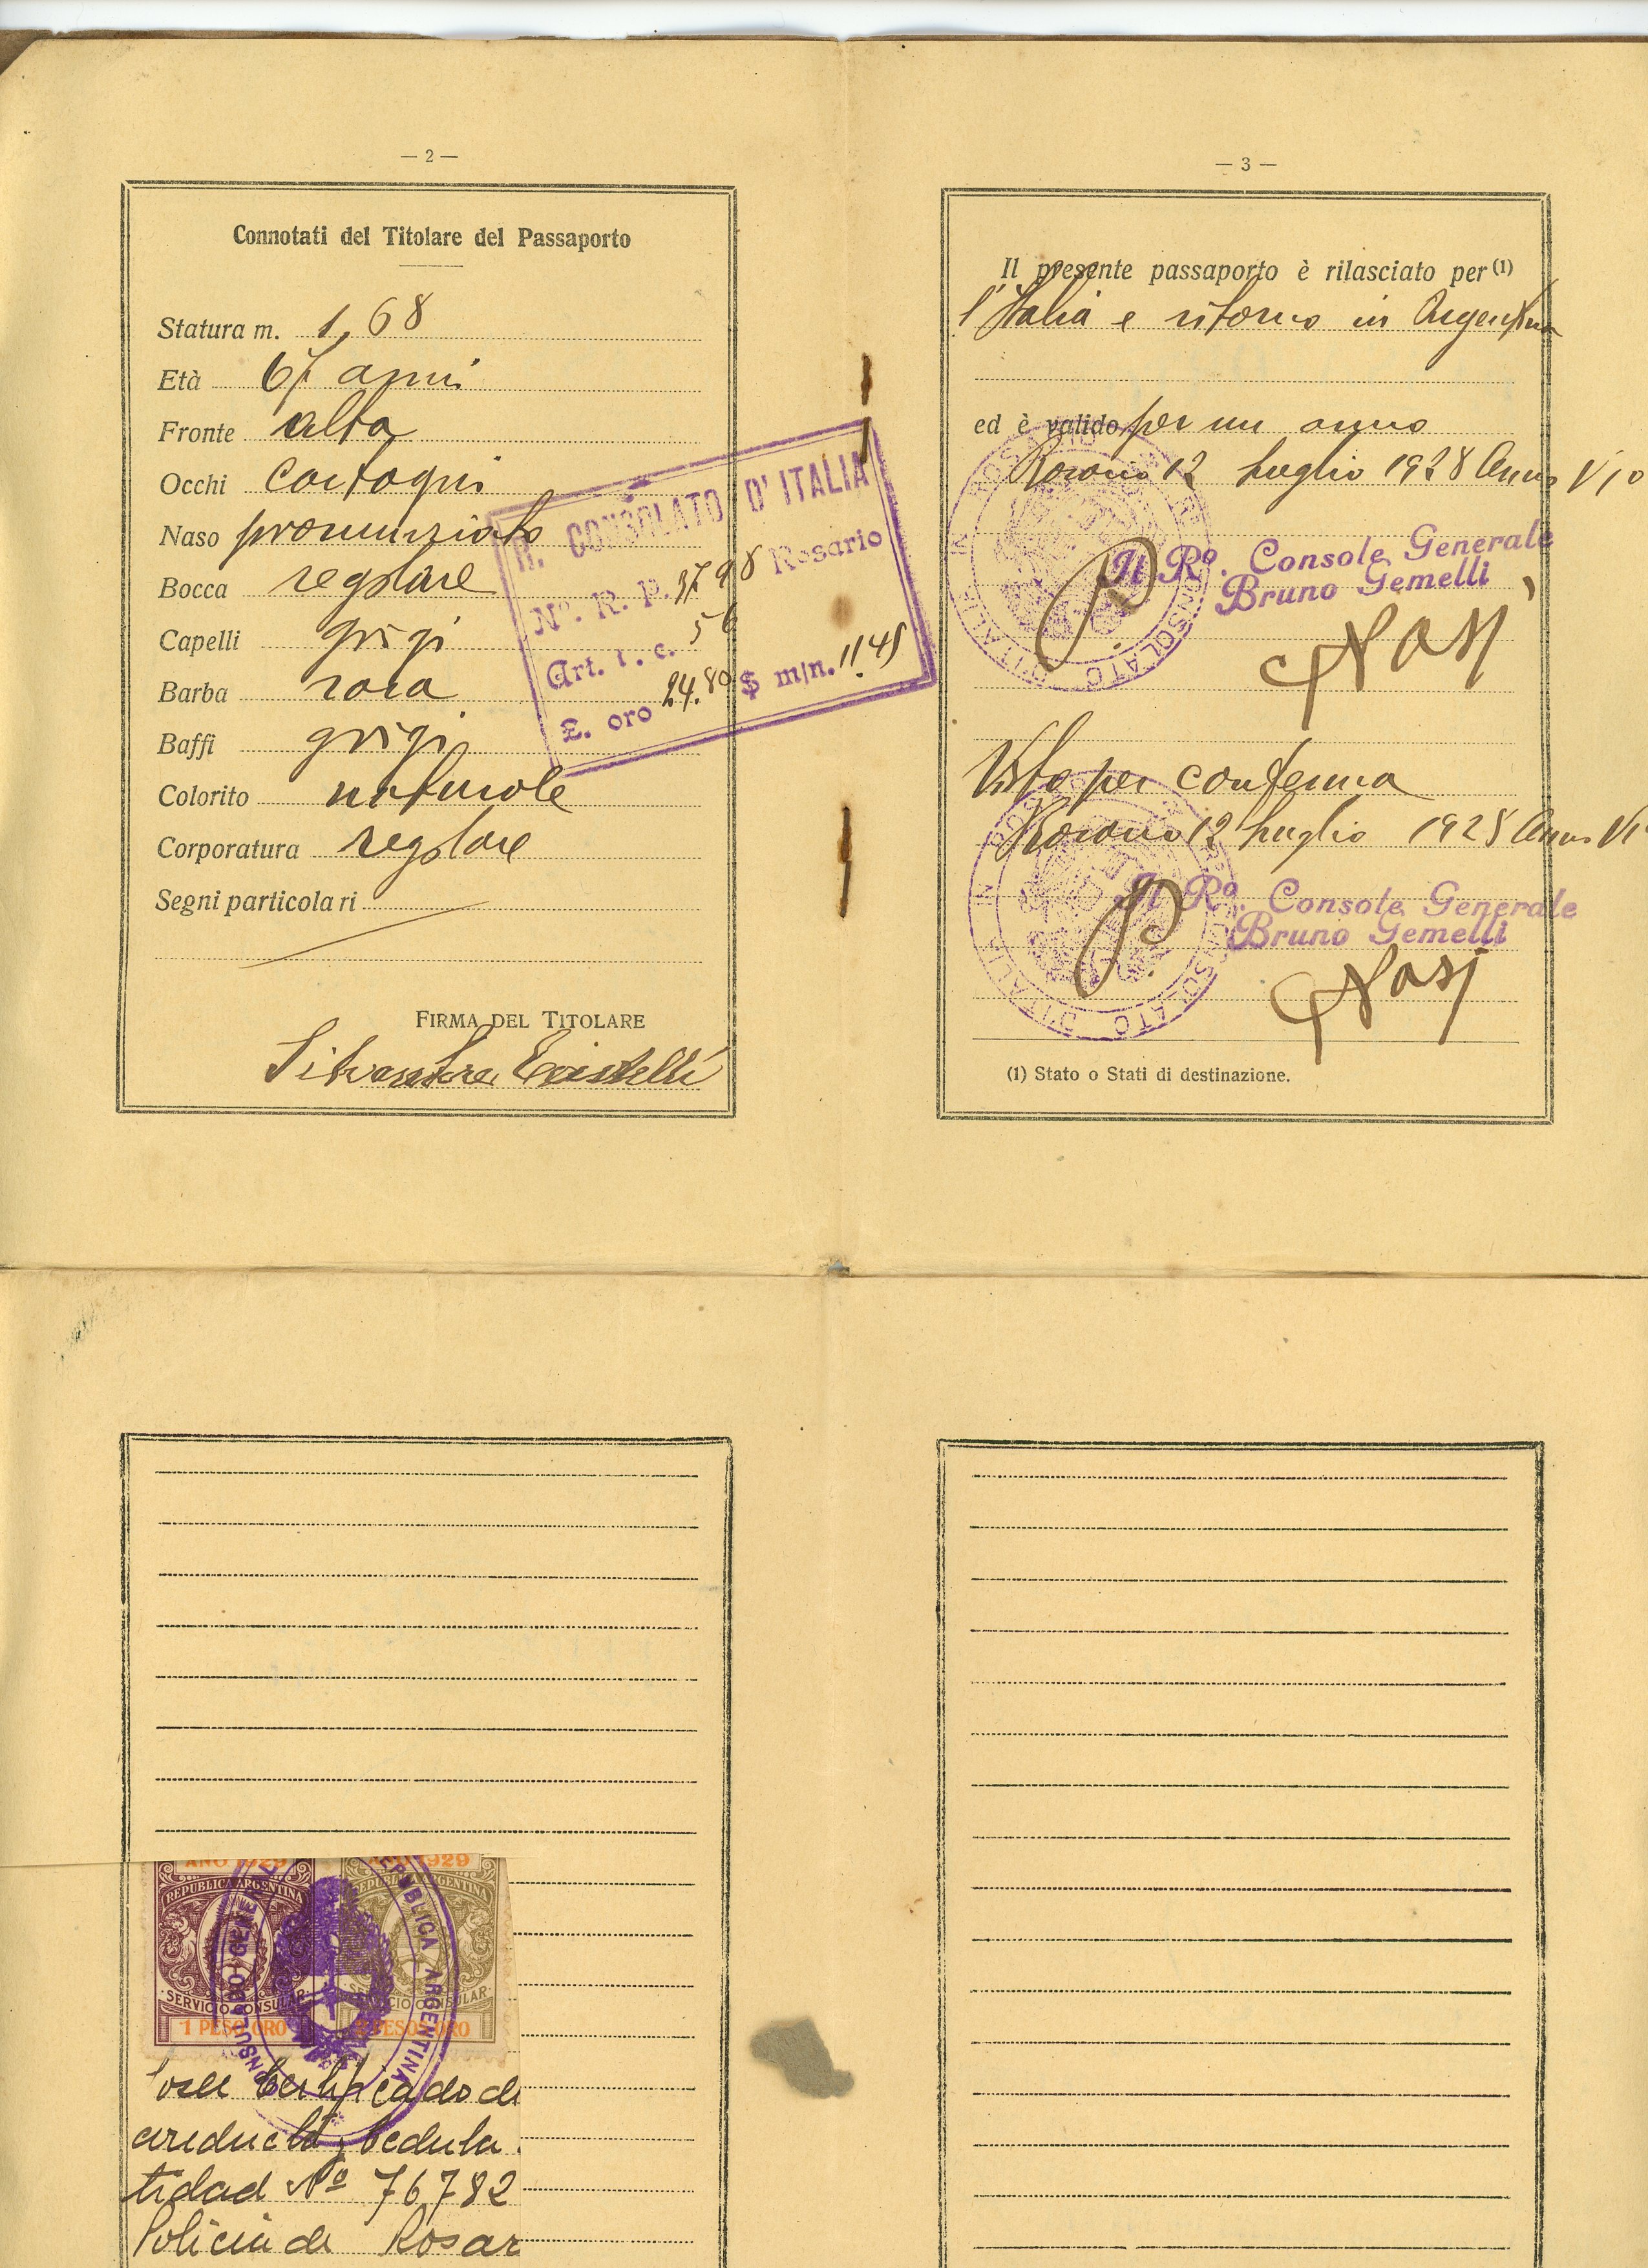 — 2 —
Connotati del Titolare del Passaporto
Statura m. 1,68
Età 67 anni
Fronte alta
Occhi castagni
Naso pronunziato
Bocca regolare
Capelli grigi
Barba rasa
Baffi grigi
Colorito naturale
Corporatura regolare
Segni particolari
FIRMA DEL TITOLARE
R. CONSOLATO D'ITALIA
Nº. R. P. 3798 Rosario
Art. t. c. 56
£. oro 24.80 $ m/n. 11.45
— 3 —
Il presente passaporto è rilasciato per (1)
l'Italia e ritorno in Argentina
ed è valido per un anno
Rosario 12 Luglio 1928 Anno VIº
Il Rº. Console Generale
Bruno Gemelli
p.
Nasi
Visto per conferma
Rosario 12 Luglio 1928 Anno VI
Il Rº. Console Generale
Bruno Gemelli
p.
Nasi
(1) Stato o Stati di destinazione.
AÑO 1929
REPUBLICA ARGENTINA
SERVICIO CONSULAR
1 PESO ORO
1929
REPUBLICA ARGENTINA
SERVICIO CONSULAR
PESOS ORO
REPUBLICA ARGENTINA
CONSULADO GENE
Certificado de
Cedula
tidad Nº 76782
Policia de Rosar